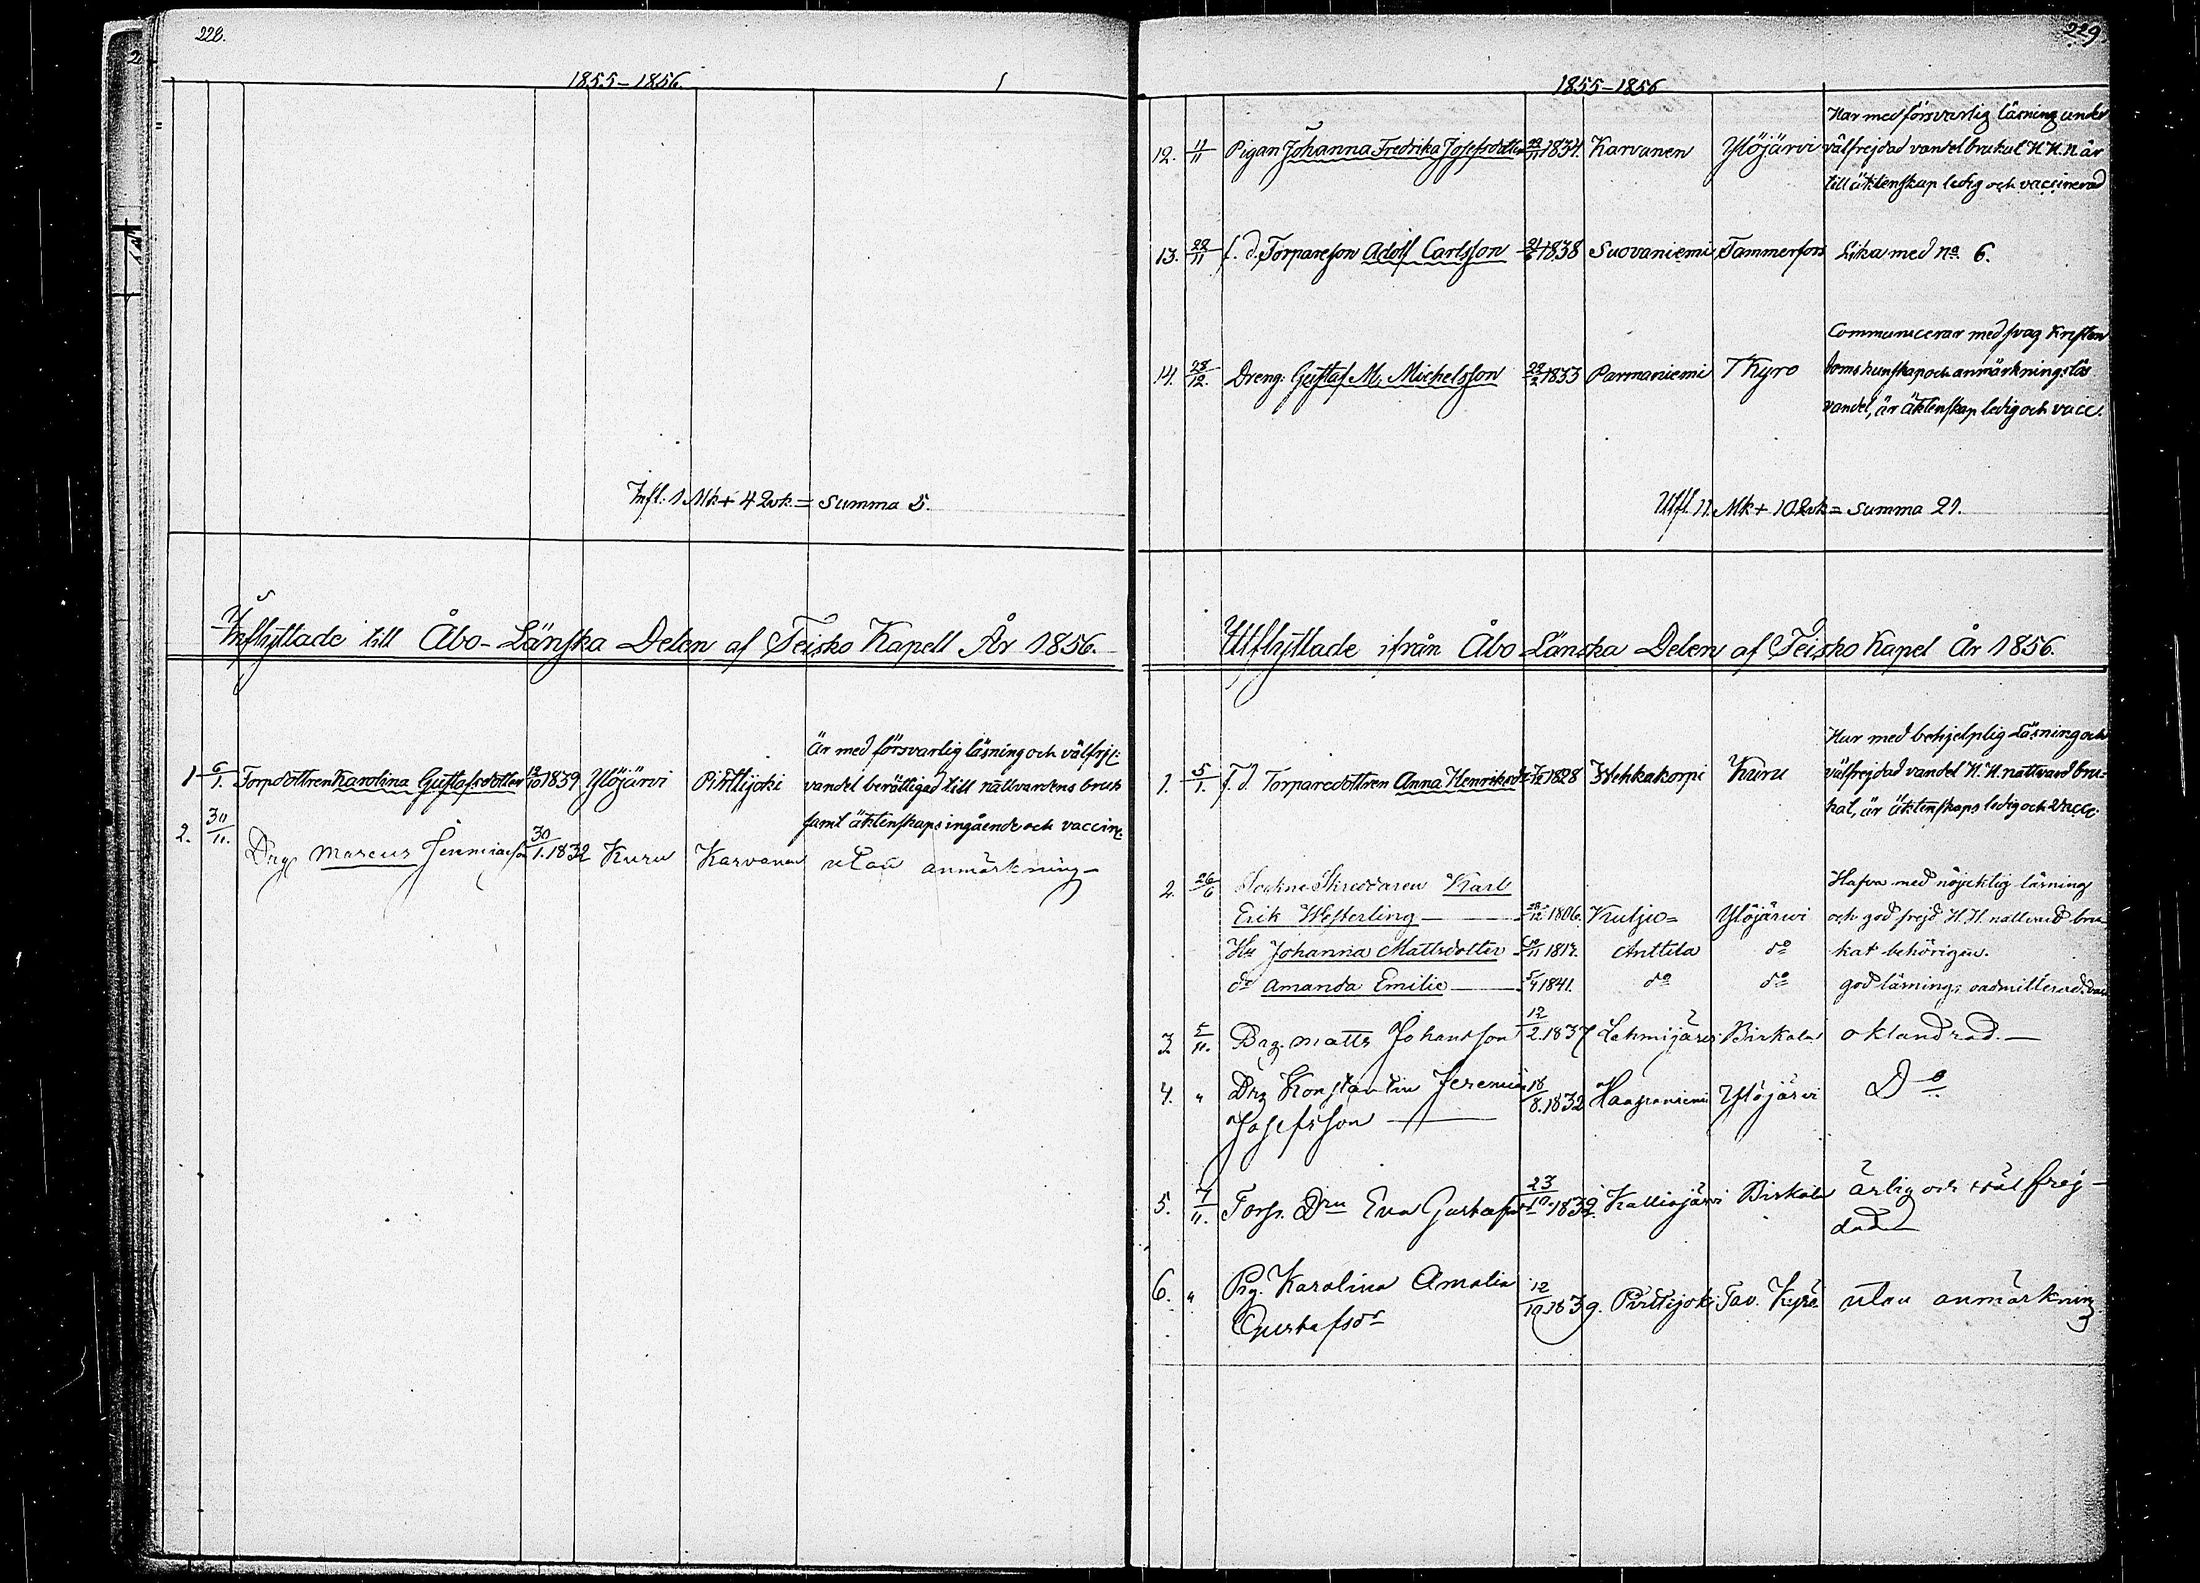 228.
1855-1856.
Infl: 1 Mk + 4 Qvk. = Summa 5.
Inflyttade till Åbo-Länska Delen af Teisko Kapell År 1856.
1 6/1. Torpdottren Karolina Gustafsdotter 12/10 1839 Ylöjärvi Pihtlijoki
Är med försvarlig läsning och välfrjd:
vandel berättigad till nattvardens bruk
samt äktenskaps ingående och vaccin:
2. 30/11. Drg Marcus Jeremiaeson 30/1.1832 Kuru Karvanen utan anmärkning-
229.
1855-1856
12. 11/11 Pigan Johanna Fredrika Josefsdotter 1834. Karvanen Ylöjärvi
Har med försvarlig läsning under
välfrejdad vandel brukat H.H.N. är
till äktenskap ledig och vaccinerad
13. 22/11 f. d. Torpareson Adolf Carlsson 1838 Suovaniemi Tammerfors Lika med No 6.
14. 28/12. Dreng: Gustaf M. Michelsson 22/2 1833 Parmaniemi T Kyro
Communicerar med svag Kristen
doms kunskap och anmärkningslös
vandel, är äktenskap ledig och vacc.
Utfl. 11. Mk + 10. Qvk = Summa 21.
Utflyttade ifrån Åbo Länska Delen af Teisko Kapel År 1856.
1. 5/1. f. d. Torparedottren Anna Henriksdr 1828 Hehkakorpi Kuru
Har med behjelplig Läsning och
välfrejdad vandel H. H. nattvard bru-
kat, är äktenskaps ledig och Vacc:
2. 26/6 Sockne Skreddaren Karl
Erik Westerling 1806. Kutjio= Ylöjärwi
Hu Johanna Mattsdotter Anttila do
dr Amanda Emilie 5/4 1841. do do
Hafva med nöjaktig läsning
och god frejd H.H. nattvard bru-
kat behörigen.
god läsning; oadmitterad. vac
3. 5/11. Drg. Matts Johansson 12/2.1837 Lahmijärvi Birkala oklandrad.
4. " Drg Konstantin Jeremias 18/8.1832 Haapaniemi Ylöjärvi Do
Josefsson
5. 7/11. Torp. Dru Eva Gustafsdr 23/10.1832. Kalliojärvi Birkala ärlig och väl frej-
dad
6. " Pig. Karolina Amalia 12/10.1839. Pirttijoki Tav. Kyrö. utan anmärkning
Gustafsdr